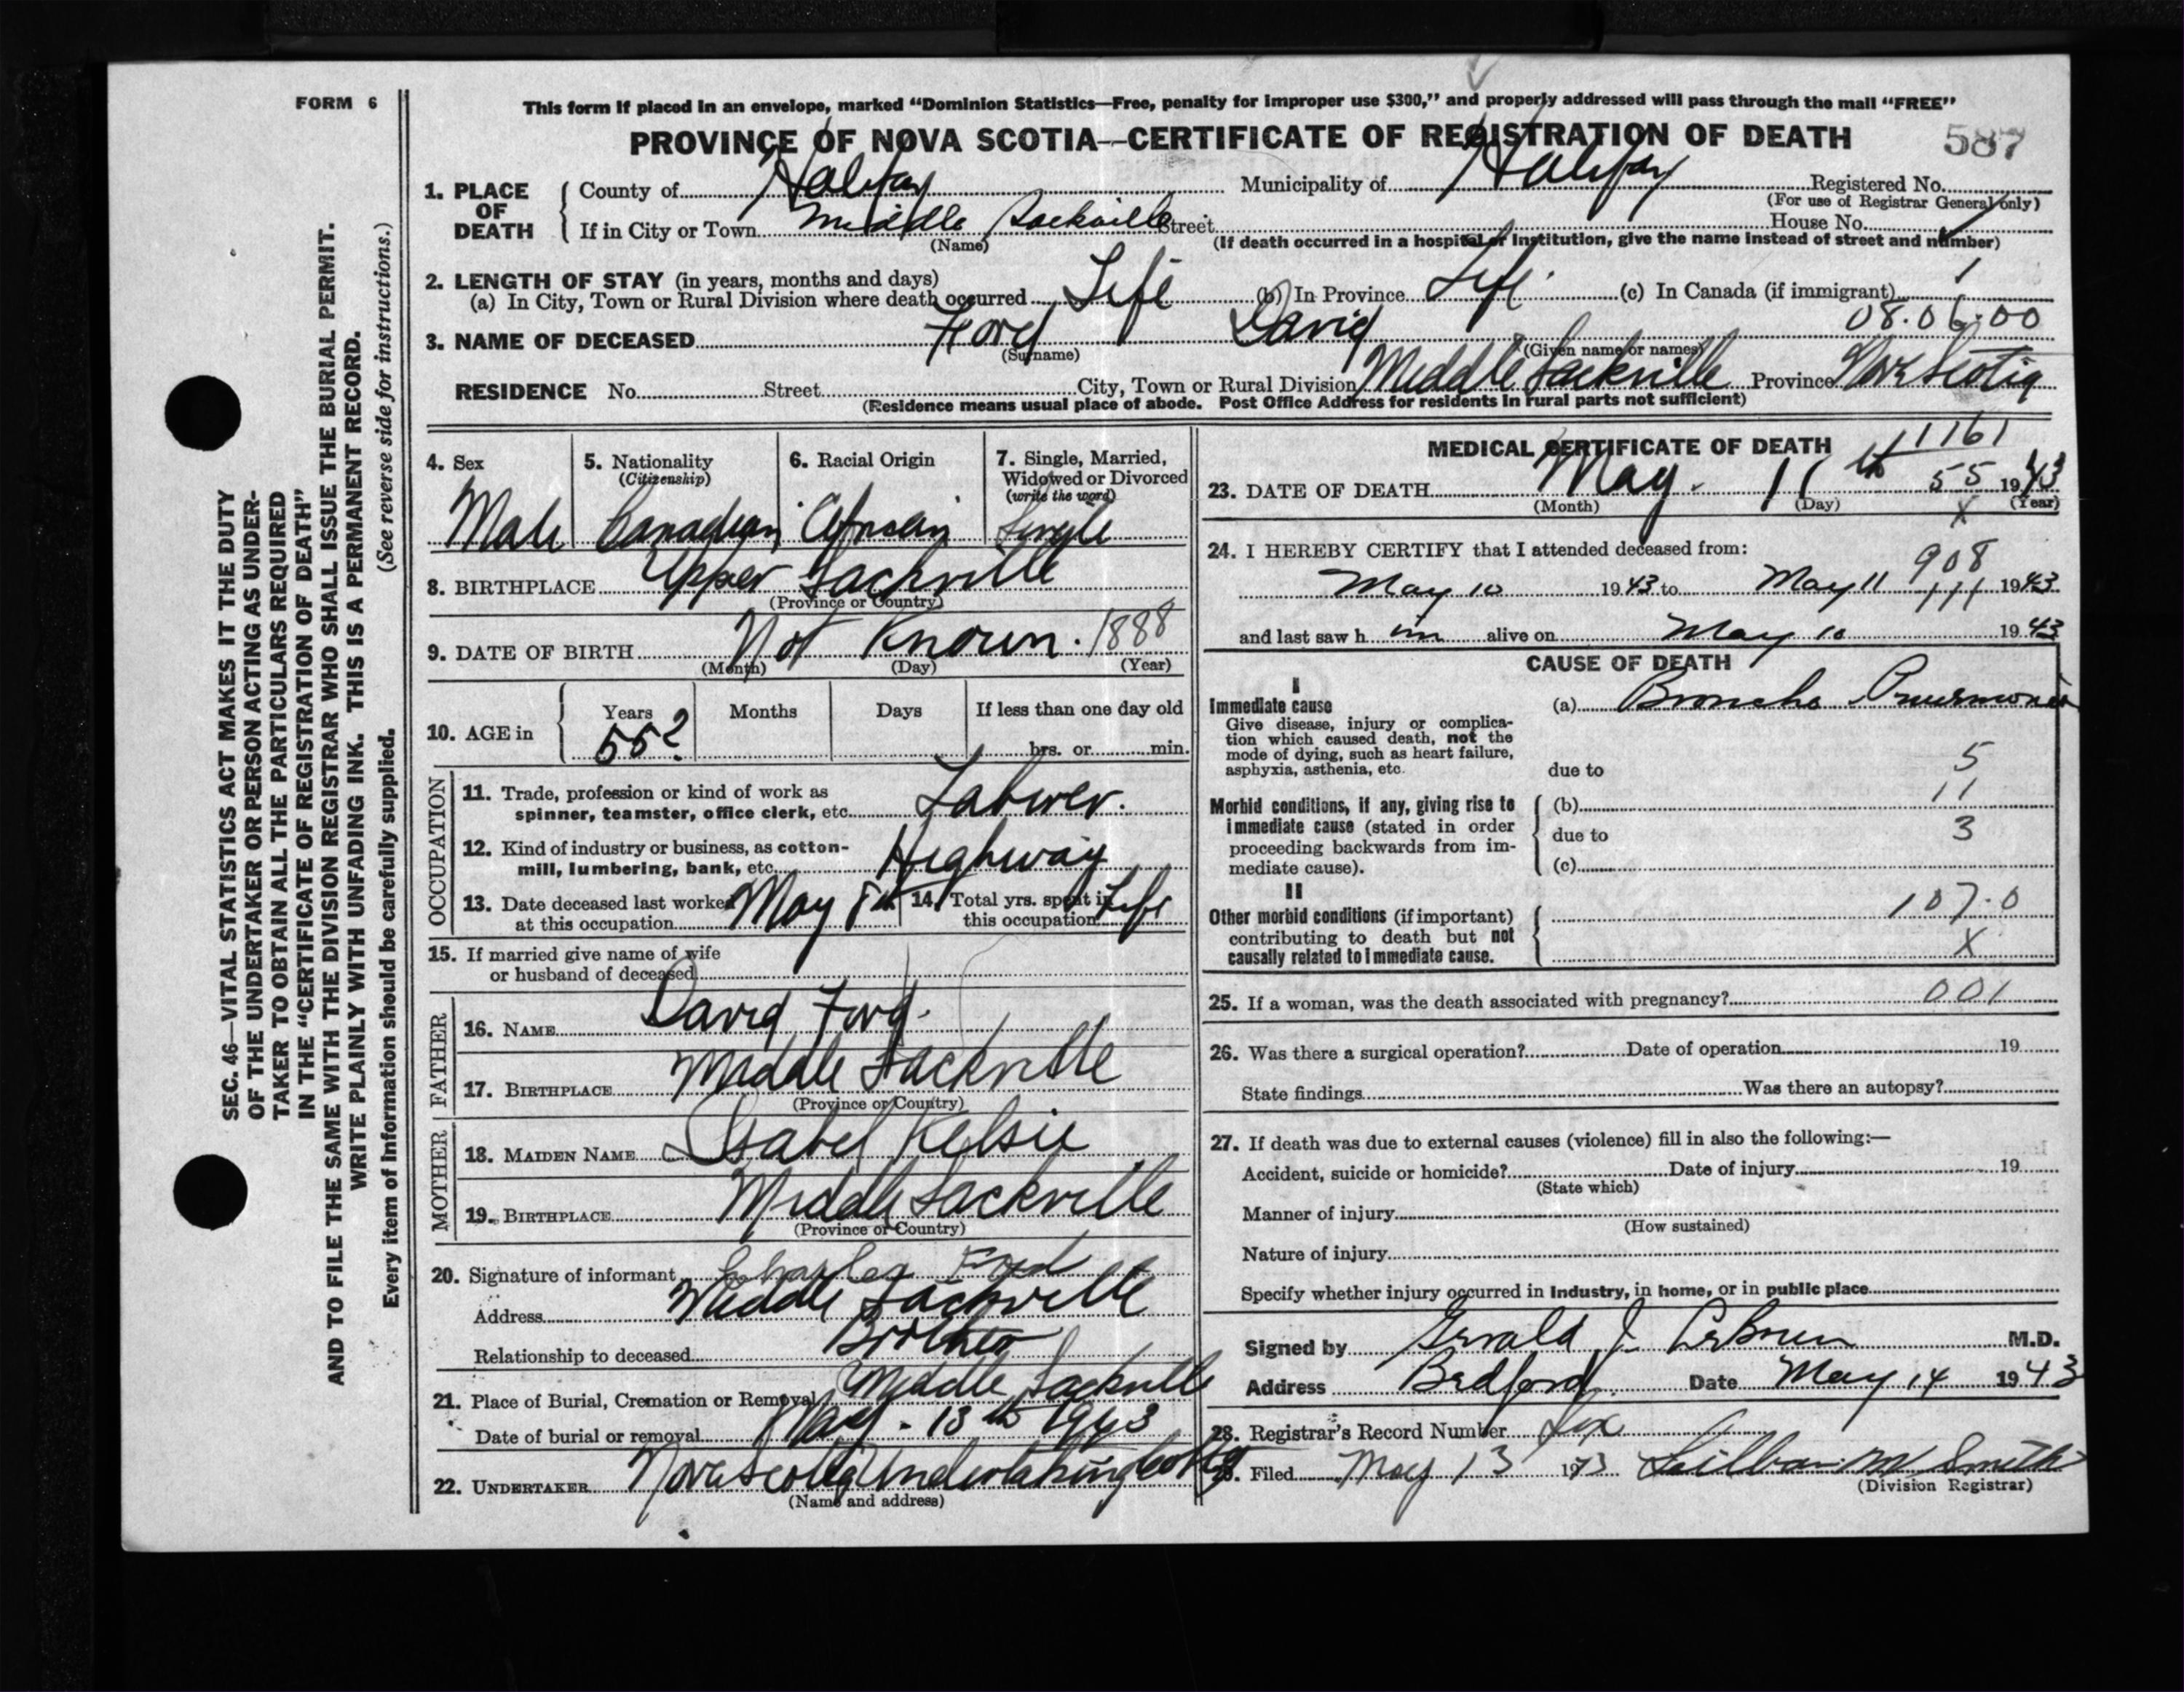 FORM 6
This form if placed in an envelope, marked “Dominion Statistics—Free, penalty for improper use $300,” and properly addressed will pass through the mail “FREE”
PROVINCE OF NOVA SCOTIA—CERTIFICATE OF REGISTRATION OF DEATH 587
1. PLACE OF DEATH
County of Halifax Municipality of Halifax Registered No.
(For use of Registrar General only)
If in City or Town Middle Sackville Street House No.
(Name) (If death occurred in a hospital or institution, give the name instead of street and number)
2. LENGTH OF STAY (in years, months and days)
(a) In City, Town or Rural Division where death occurred Life (b) In Province Life (c) In Canada (if immigrant)
08.06.00
3. NAME OF DECEASED Ford David
(Surname) (Given name or names)
RESIDENCE No. Street City, Town or Rural Division Middle Sackville Province Nova Scotia
(Residence means usual place of abode. Post Office Address for residents in rural parts not sufficient)
4. Sex 5. Nationality (Citizenship) 6. Racial Origin 7. Single, Married, Widowed or Divorced (write the word)
Male Canadian African Single
8. BIRTHPLACE Upper Sackville
(Province or Country)
9. DATE OF BIRTH Not Known. 1888
(Month) (Day) (Year)
10. AGE in Years Months Days If less than one day old
55? hrs. or min.
OCCUPATION
11. Trade, profession or kind of work as
spinner, teamster, office clerk, etc. Labourer.
12. Kind of industry or business, as cotton-
mill, lumbering, bank, etc. Highway
13. Date deceased last worked at this occupation May 8th 14. Total yrs. spent in this occupation Life
15. If married give name of wife
or husband of deceased
FATHER
16. NAME David Ford.
17. BIRTHPLACE Middle Sackville
(Province or Country)
MOTHER
18. MAIDEN NAME Isabel Kelsie
19. BIRTHPLACE Middle Sackville
(Province or Country)
20. Signature of informant Charles Ford
Address Middle Sackville
Relationship to deceased Brother
21. Place of Burial, Cremation or Removal Middle Sackville
Date of burial or removal May - 13th 1943
22. UNDERTAKER Nova Scotia Undertaking Co
(Name and address)
MEDICAL CERTIFICATE OF DEATH 11161
23. DATE OF DEATH May. 11th 55 1943
(Month) (Day) (Year)
X
24. I HEREBY CERTIFY that I attended deceased from:
908
May 10 1943 to May 11 111 1943
and last saw him alive on May 10 1943
CAUSE OF DEATH
I
Immediate cause (a) Broncho Pneumonia
Give disease, injury or complica-
tion which caused death, not the
mode of dying, such as heart failure,
asphyxia, asthenia, etc. due to 5
Morbid conditions, if any, giving rise to (b) 11
immediate cause (stated in order due to 3
proceeding backwards from im-
mediate cause). (c)
II
Other morbid conditions (if important) 107.0
contributing to death but not
causally related to immediate cause. X
25. If a woman, was the death associated with pregnancy? 001
26. Was there a surgical operation? Date of operation 19
State findings Was there an autopsy?
27. If death was due to external causes (violence) fill in also the following:—
Accident, suicide or homicide? Date of injury 19
(State which)
Manner of injury
(How sustained)
Nature of injury
Specify whether injury occurred in industry, in home, or in public place
Signed by Gerald J. LeBrun M.D.
Address Bedford Date May 14 1943
28. Registrar's Record Number Six
29. Filed May 13 1943 M Smith
(Division Registrar)
SEC. 46—VITAL STATISTICS ACT MAKES IT THE DUTY
OF THE UNDERTAKER OR PERSON ACTING AS UNDER-
TAKER TO OBTAIN ALL THE PARTICULARS REQUIRED
IN THE “CERTIFICATE OF REGISTRATION OF DEATH”
AND TO FILE THE SAME WITH THE DIVISION REGISTRAR WHO SHALL ISSUE THE BURIAL PERMIT.
WRITE PLAINLY WITH UNFADING INK. THIS IS A PERMANENT RECORD.
Every item of information should be carefully supplied. (See reverse side for instructions.)